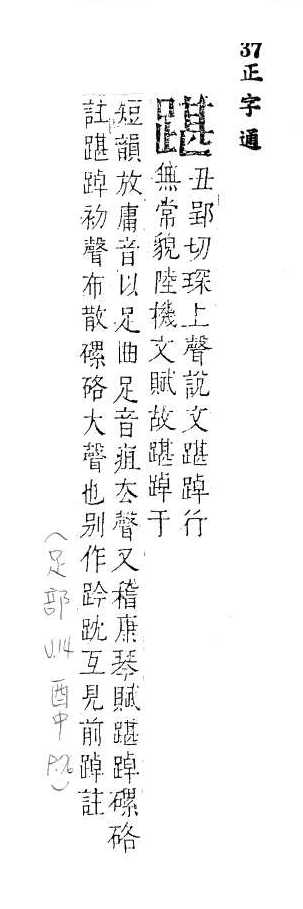 37正字通
踸
丑郢切琛上聲說文踸踔行
無常貌陸機文賦故踸踔于
短韻放庸音以足曲足音疽去聲又稽康琴賦踸踔磥硌
註踸踔初聲布散磥硌大聲也別作趻踸互見前踔註
(足部 U.14 酉中 P.76)